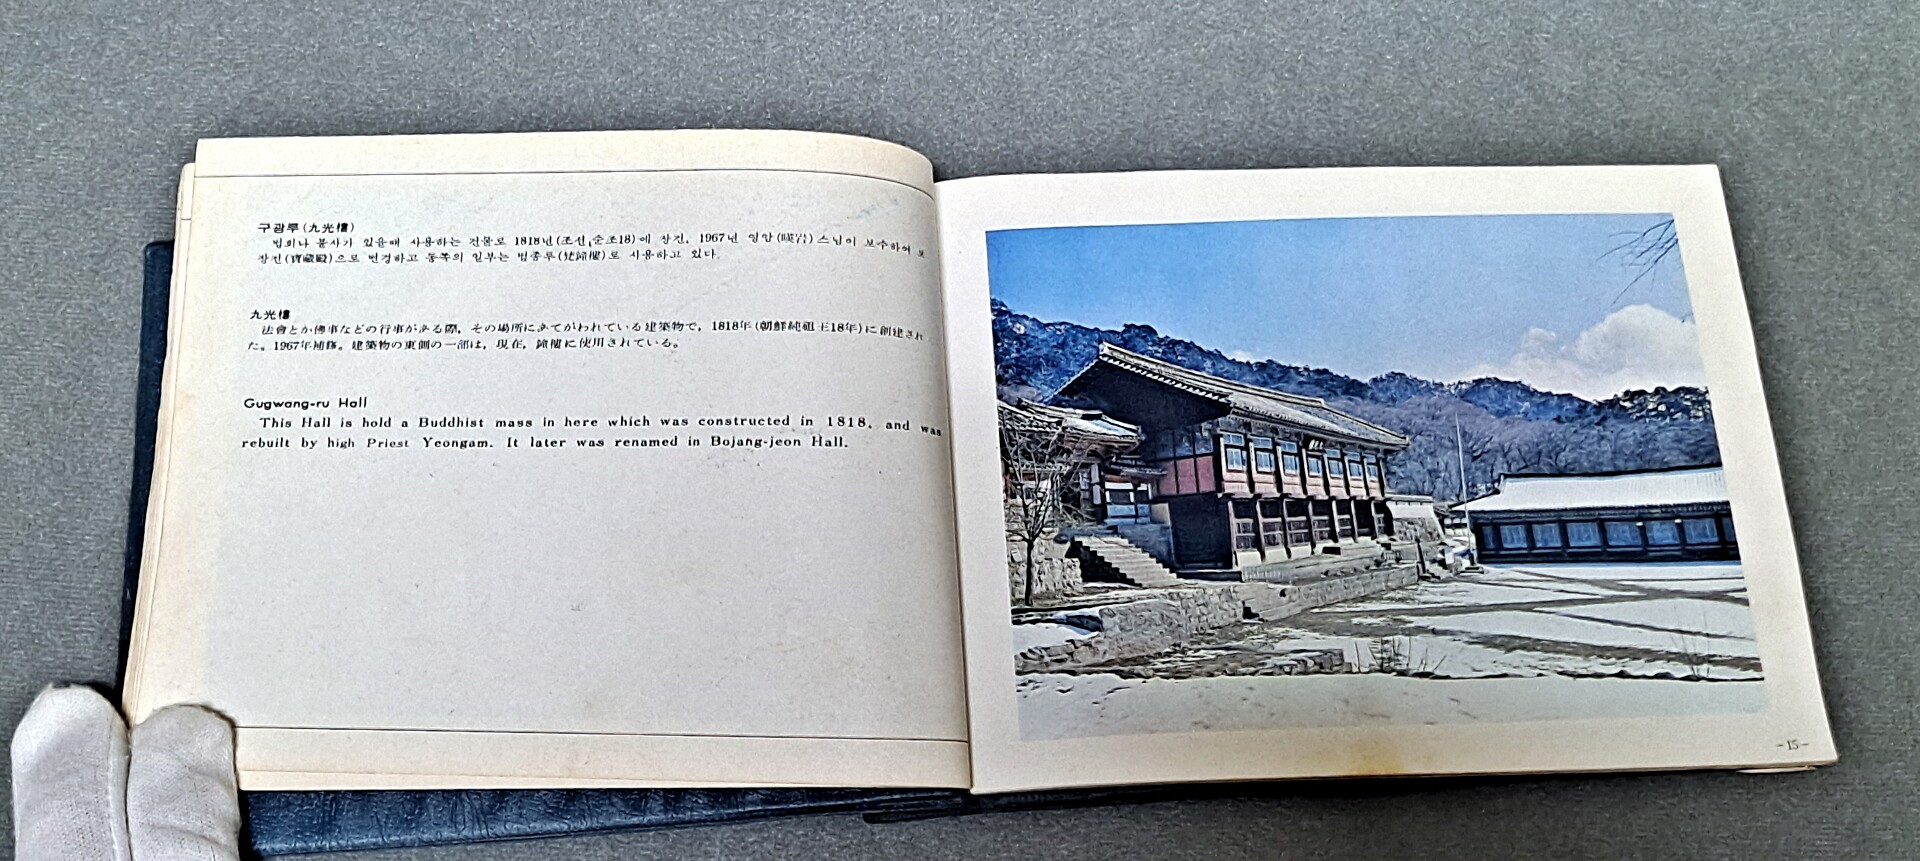 구광루(九光樓)
법회나 불사가 있을때 사용하는 건물로 1818년(조선,순조18)에 창건, 1967년 영암(暎岩)스님이 보수하여 보
장전(寶藏殿)으로 변경하고 동쪽의 일부는 범종루(梵鐘樓)로 사용하고 있다.
九光樓
法會とか佛事などの行事がある際, その場所にあてがわれている建築物で, 1818年(朝鮮純祖王18年)に創建され
た。1967年補修。建築物の東側の一部は, 現在, 鐘樓に使用されている。
Gugwang-ru Hall
This Hall is hold a Buddhist mass in here which was constructed in 1818, and was
rebuilt by high Priest Yeongam. It later was renamed in Bojang-jeon Hall.
-15-